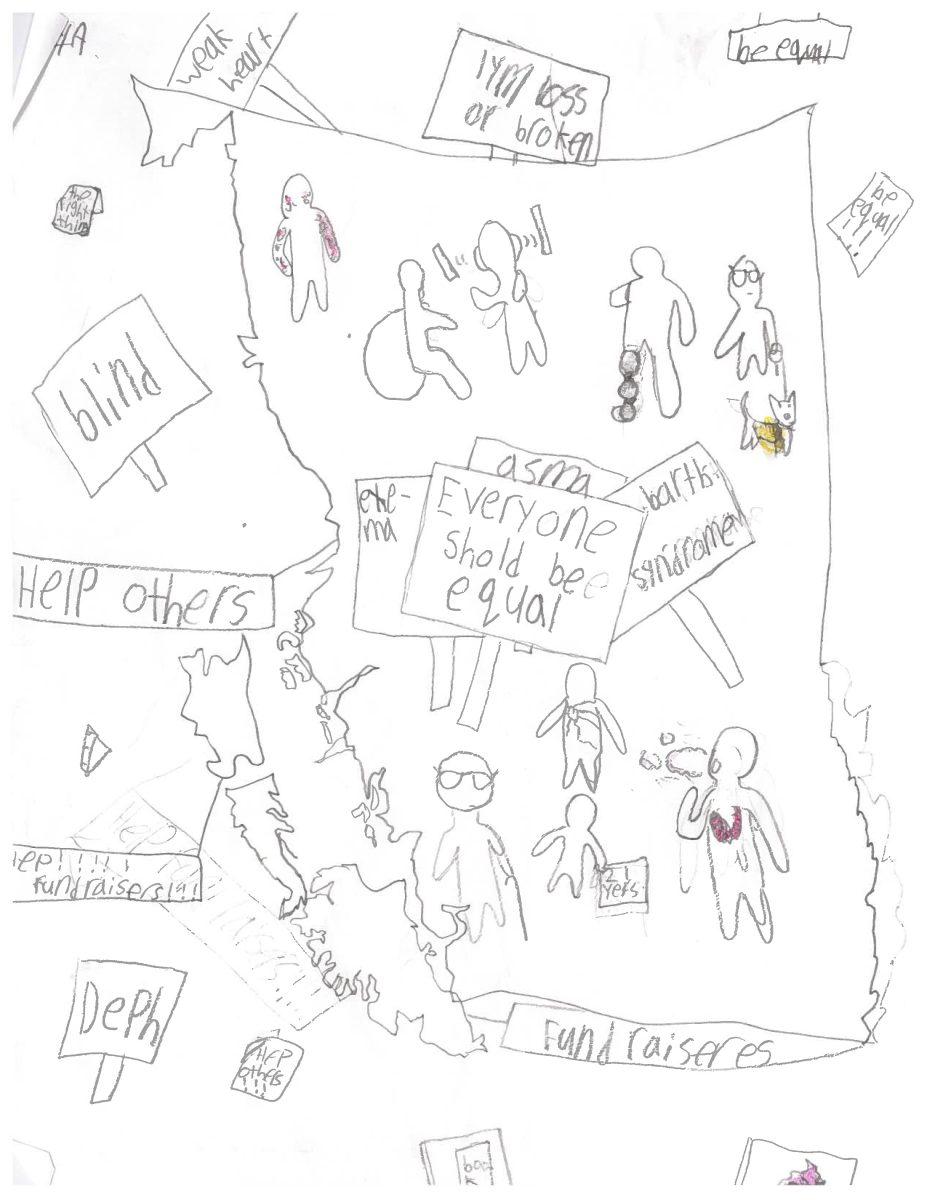 weak
heart
lym loss
or broken
be equal
the
right
thin
be
equal
!!!
blind
asma
exe-
ma
Everyone
shold bee
equal
barth
sindrome
Help others
Help
ep!!!!!
Fundraisers!!!
21
yers
Deph
Help
others
!!!
Fundraiseres